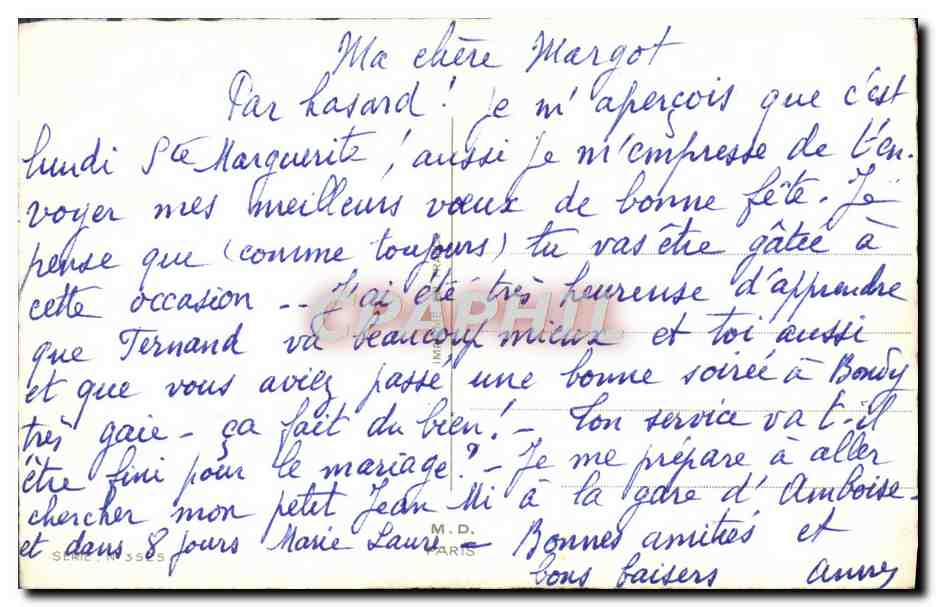 Ma chère Margot
Par hasard ! je m'aperçois que c'est
lundi Ste Marguerite ! aussi je m'empresse de t'en-
voyer mes meilleurs vœux de bonne fête. Je
pense que (comme toujours) tu vas être gâtée à
cette occasion -- J'ai été très heureuse d'apprendre
que Fernand va beaucoup mieux et toi aussi
et que vous aviez passé une bonne soirée à Bondy
très gaie - ça fait du bien ! - Ton service va t-il
être fini pour le mariage ? - Je me prépare à aller
chercher mon petit Jean Mi à la gare d'Amboise -
et dans 8 jours Marie Laure - Bonnes amitiés et
bons baisers Anny
CPAPHIL
M.D.
PARIS
SERIE : N° 3525